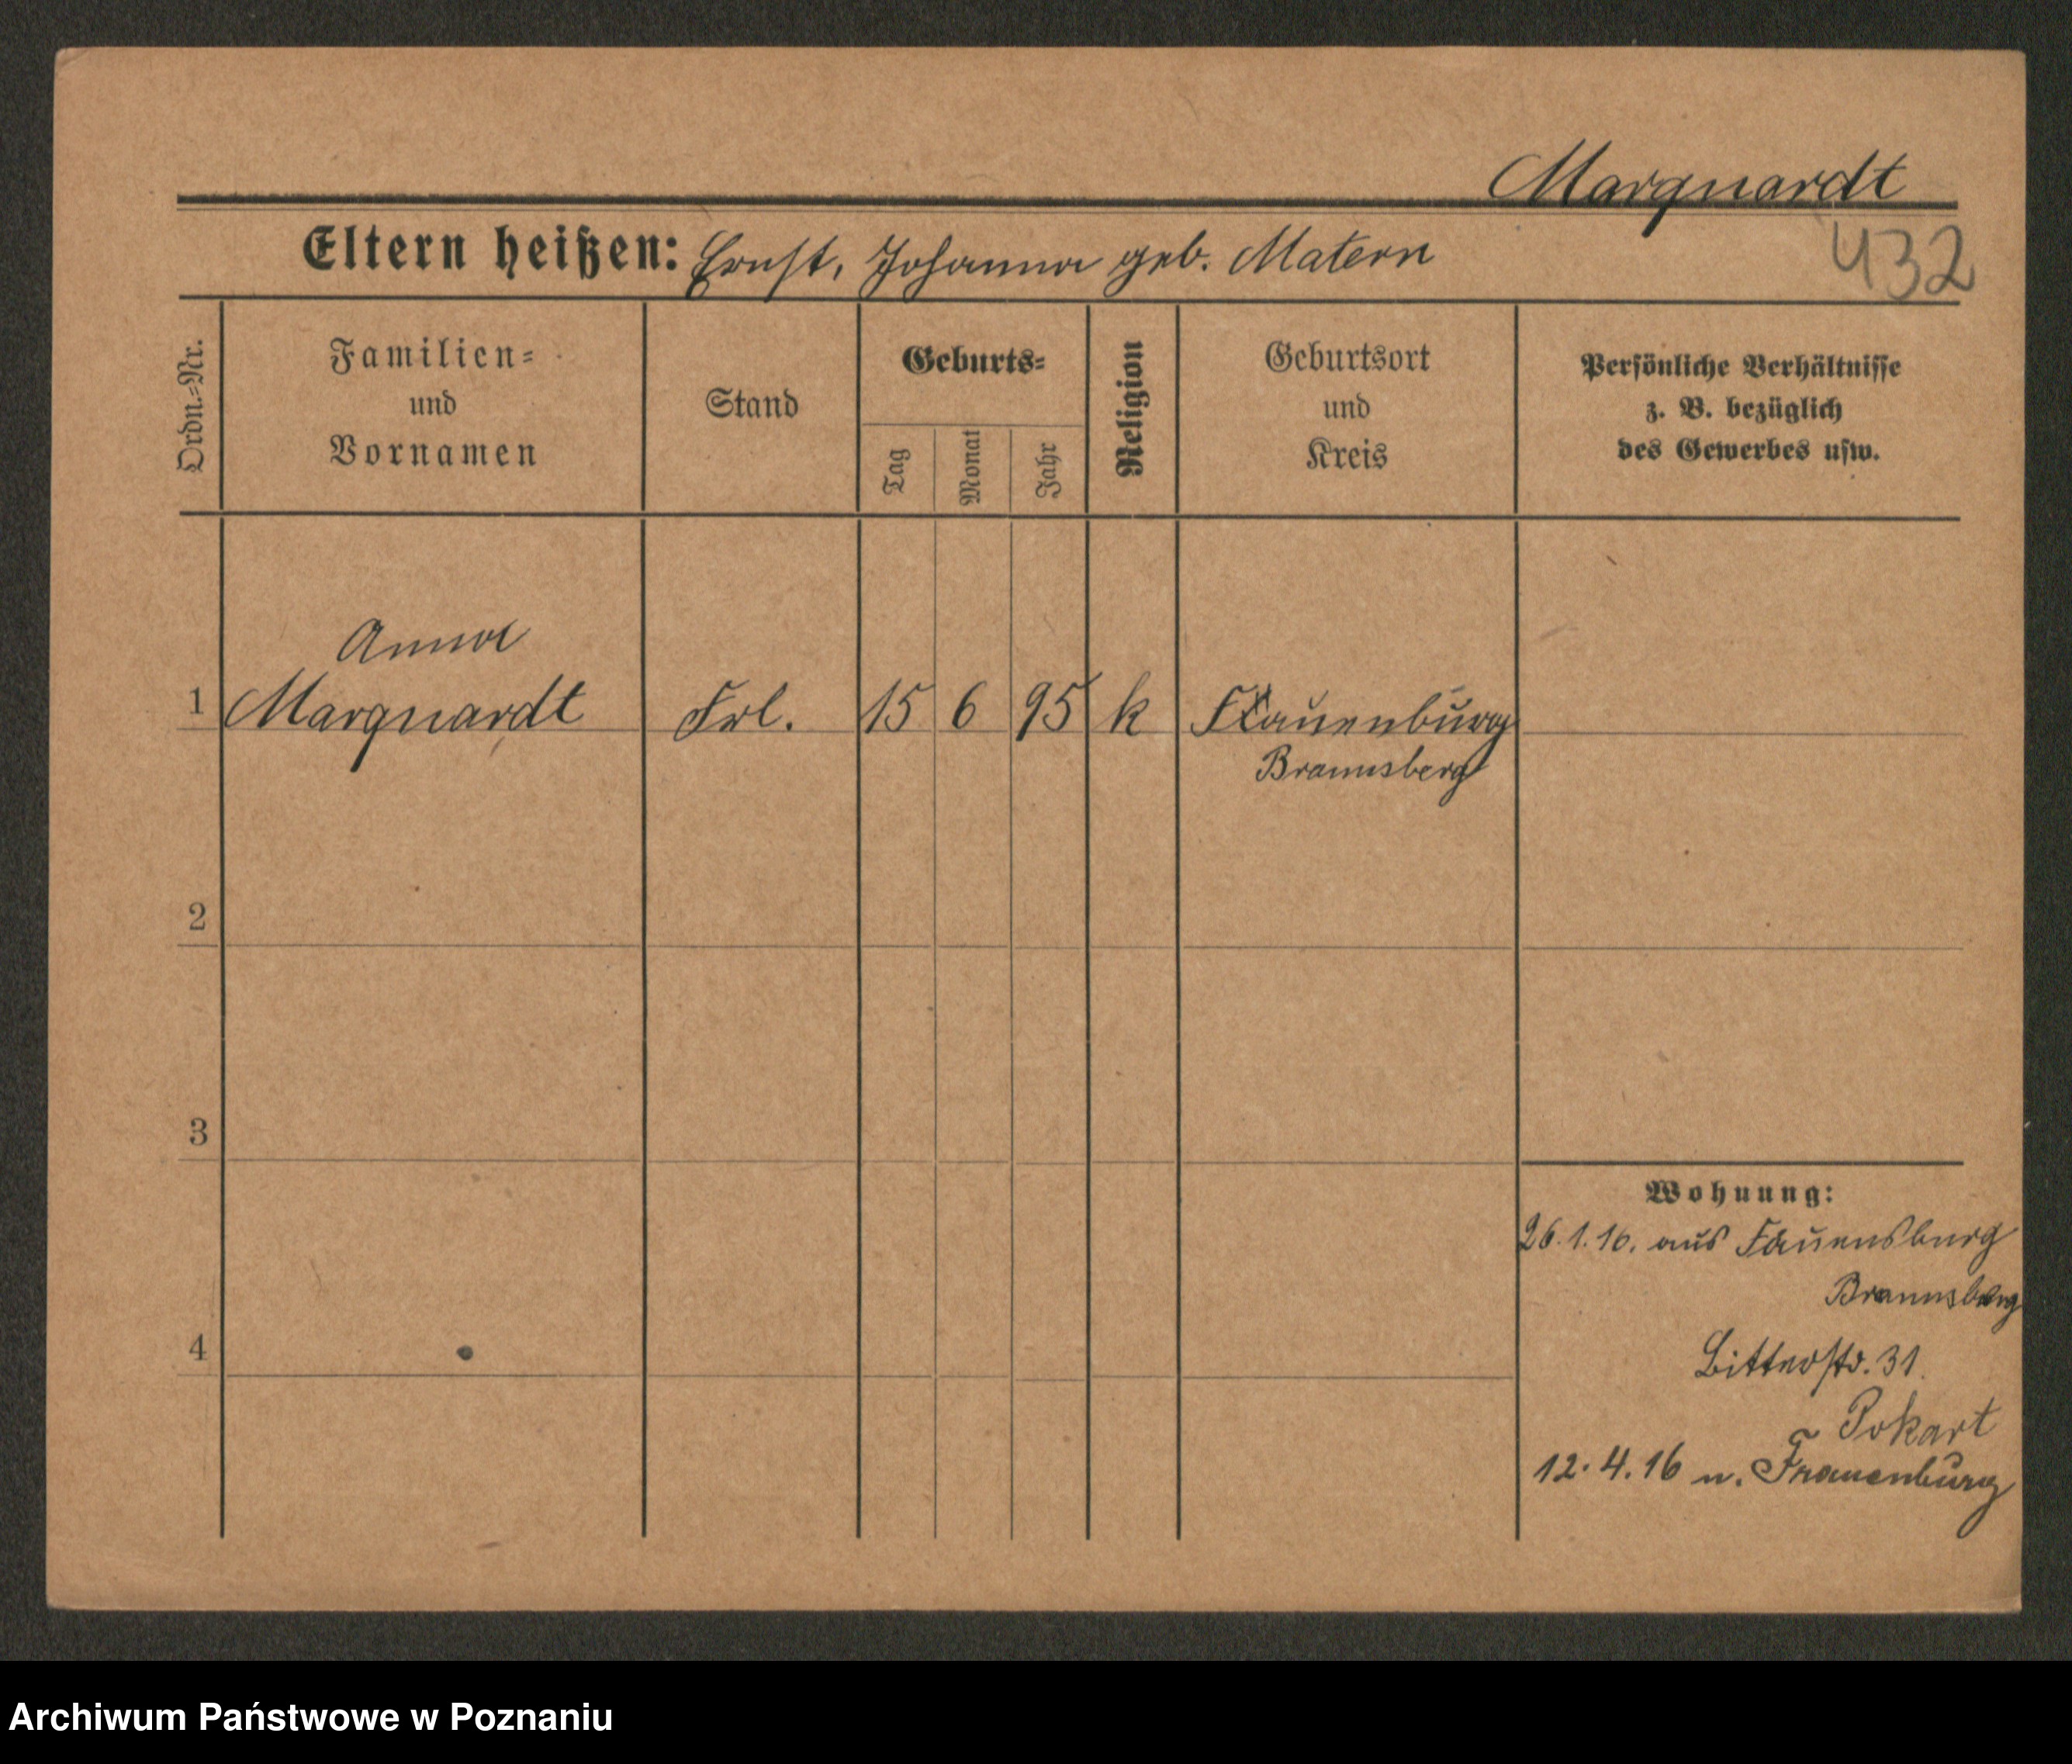 Marquardt
432
Eltern heißen: Ernst, Johanna geb. Matern
Ordn.=Nr.
Familien=
und
Vornamen
Stand
Geburts=
Tag
Monat
Jahr
Religion
Geburtsort
und
Kreis
Persönliche Verhältnisse
z. B. bezüglich
des Gewerbes usw.
Anna
1 Marquardt Frl. 15 6 95 k Frauenburg
Braunsberg
2
3
4
Wohnung:
26.1.16. aus Fauensburg
Braunsberg
31.
Pokart
12.4.16 n. Frauenburg
Archiwum Państwowe w Poznaniu